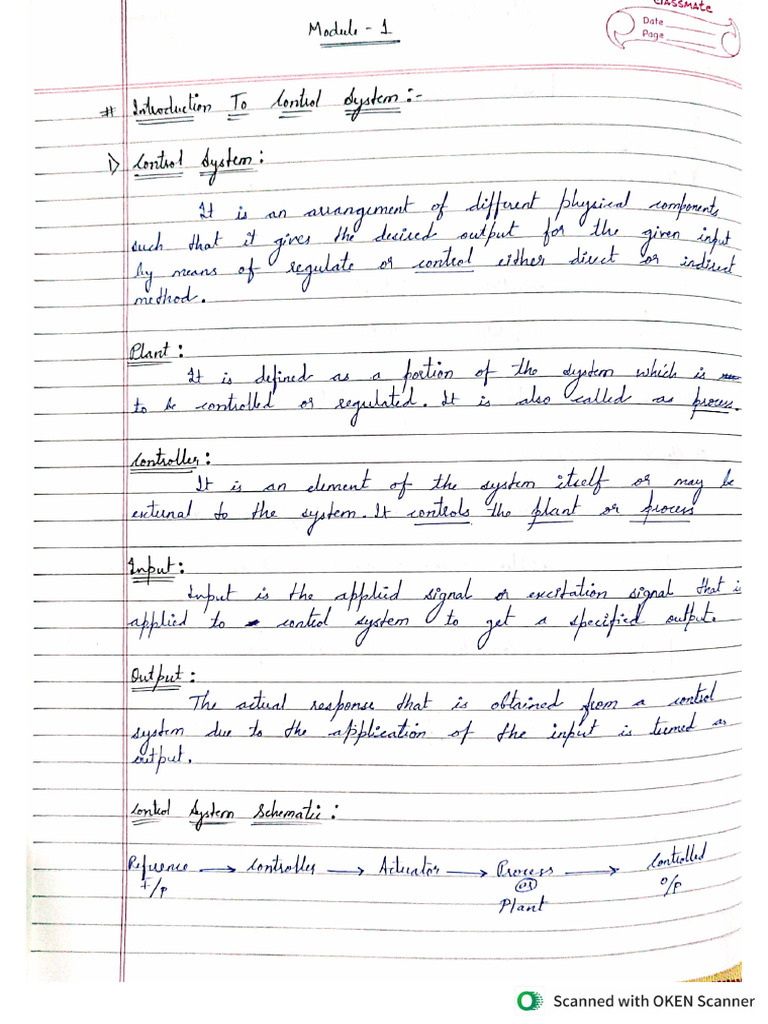 classmate
Date
Page
Module - 1
# Introduction To Control System :-
1) Control System :
It is an arrangement of different physical components
such that it gives the desired output for the given input
by means of regulate or control either direct or indirect
method.
Plant :
It is defined as a portion of the system which is
to be controlled or regulated. It is also called as process.
Controller :
It is an element of the system itself or may be
external to the system. It controls the plant or process
Input :
Input is the applied signal or excitation signal that is
applied to control system to get a specified output.
Output :
The actual response that is obtained from a control
system due to the application of the input is termed as
output.
Control System Schematic :
Reference → Controller → Actuator → Process → Controlled
I/p (or) o/p
Plant
Scanned with OKEN Scanner